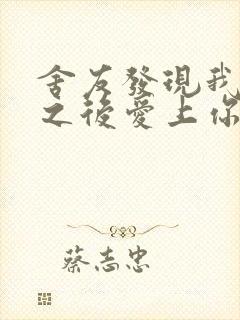 舍友發現我
之後愛上你
蔡志忠